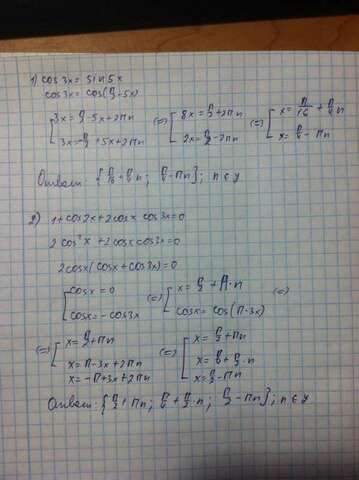 1) cos3x = sin5x
cos3x = cos(π/2 - 5x)
[3x = π/2 - 5x + 2πn (=) [8x = π/2 + 2πn (=) [x = π/16 + π/4 n
3x = -π/2 + 5x + 2πn 2x = π/2 - 2πn x = π/4 - πn
Ответ: {π/16 + π/4 n; π/4 - πn}; n є y
2) 1 + cos2x + 2cosx cos3x = 0
2cos²x + 2cosx cos3x = 0
2cosx(cosx + cos3x) = 0
[cosx = 0 (=) [x = π/2 + π·n (=)
cosx = -cos3x cosx = cos(π-3x)
(=) [x = π/2 + πn (=) [x = π/2 + πn
x = π - 3x + 2πn x = π/4 + π/2·n
x = -π + 3x + 2πn x = π/2 - πn
Ответ: {π/2 + πn; π/4 + π/2·n; π/2 - πn}; n є y